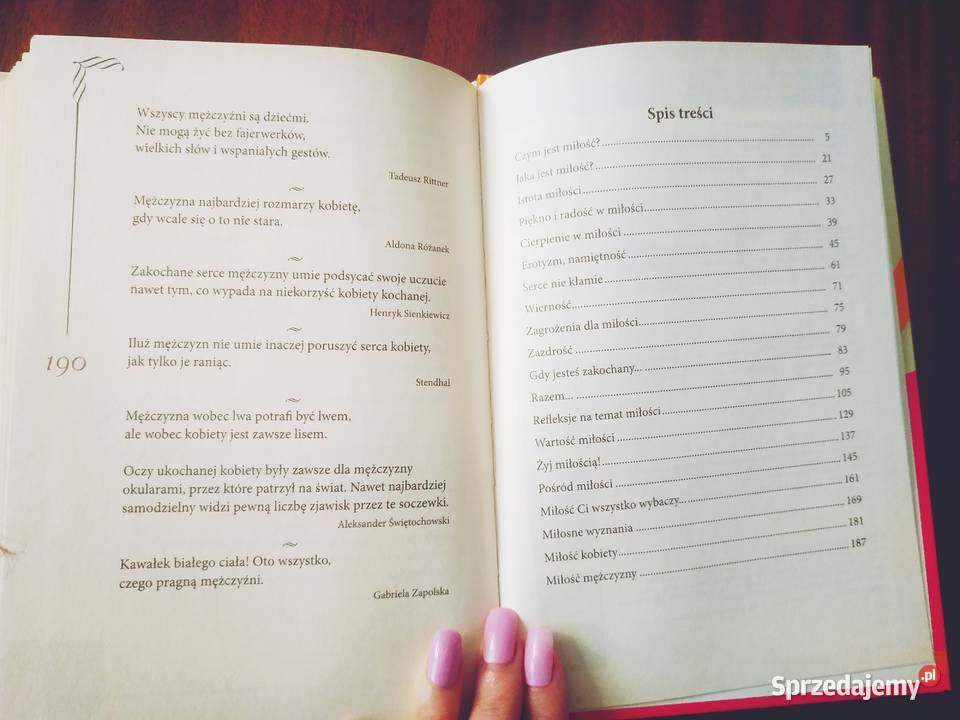 Wszyscy mężczyźni są dziećmi.
Nie mogą żyć bez fajerwerków,
wielkich słów i wspaniałych gestów.
Tadeusz Rittner
Mężczyzna najbardziej rozmarzy kobietę,
gdy wcale się o to nie stara.
Aldona Różanek
Zakochane serce mężczyzny umie podsycać swoje uczucie
nawet tym, co wypada na niekorzyść kobiety kochanej.
Henryk Sienkiewicz
Iluż mężczyzn nie umie inaczej poruszyć serca kobiety,
jak tylko je raniąc.
Stendhal
Mężczyzna wobec lwa potrafi być lwem,
ale wobec kobiety jest zawsze lisem.
Oczy ukochanej kobiety były zawsze dla mężczyzny
okularami, przez które patrzył na świat. Nawet najbardziej
samodzielny widzi pewną liczbę zjawisk przez te soczewki.
Aleksander Świętochowski
Kawałek białego ciała! Oto wszystko,
czego pragną mężczyźni.
Gabriela Zapolska
190
Spis treści
Czym jest miłość? 5
Jaka jest miłość? 21
Istota miłości 27
Piękno i radość w miłości 33
Cierpienie w miłości 39
Erotyzm, namiętność 45
Serce nie kłamie 61
Wierność 71
Zagrożenia dla miłości 75
Zazdrość 79
Gdy jesteś zakochany... 83
Razem... 95
Refleksje na temat miłości 105
Wartość miłości 129
Żyj miłością! 137
Pośród miłości 145
Miłość Ci wszystko wybaczy... 161
Miłosne wyznania 169
Miłość kobiety 181
Miłość mężczyzny 187
Sprzedajemy.pl